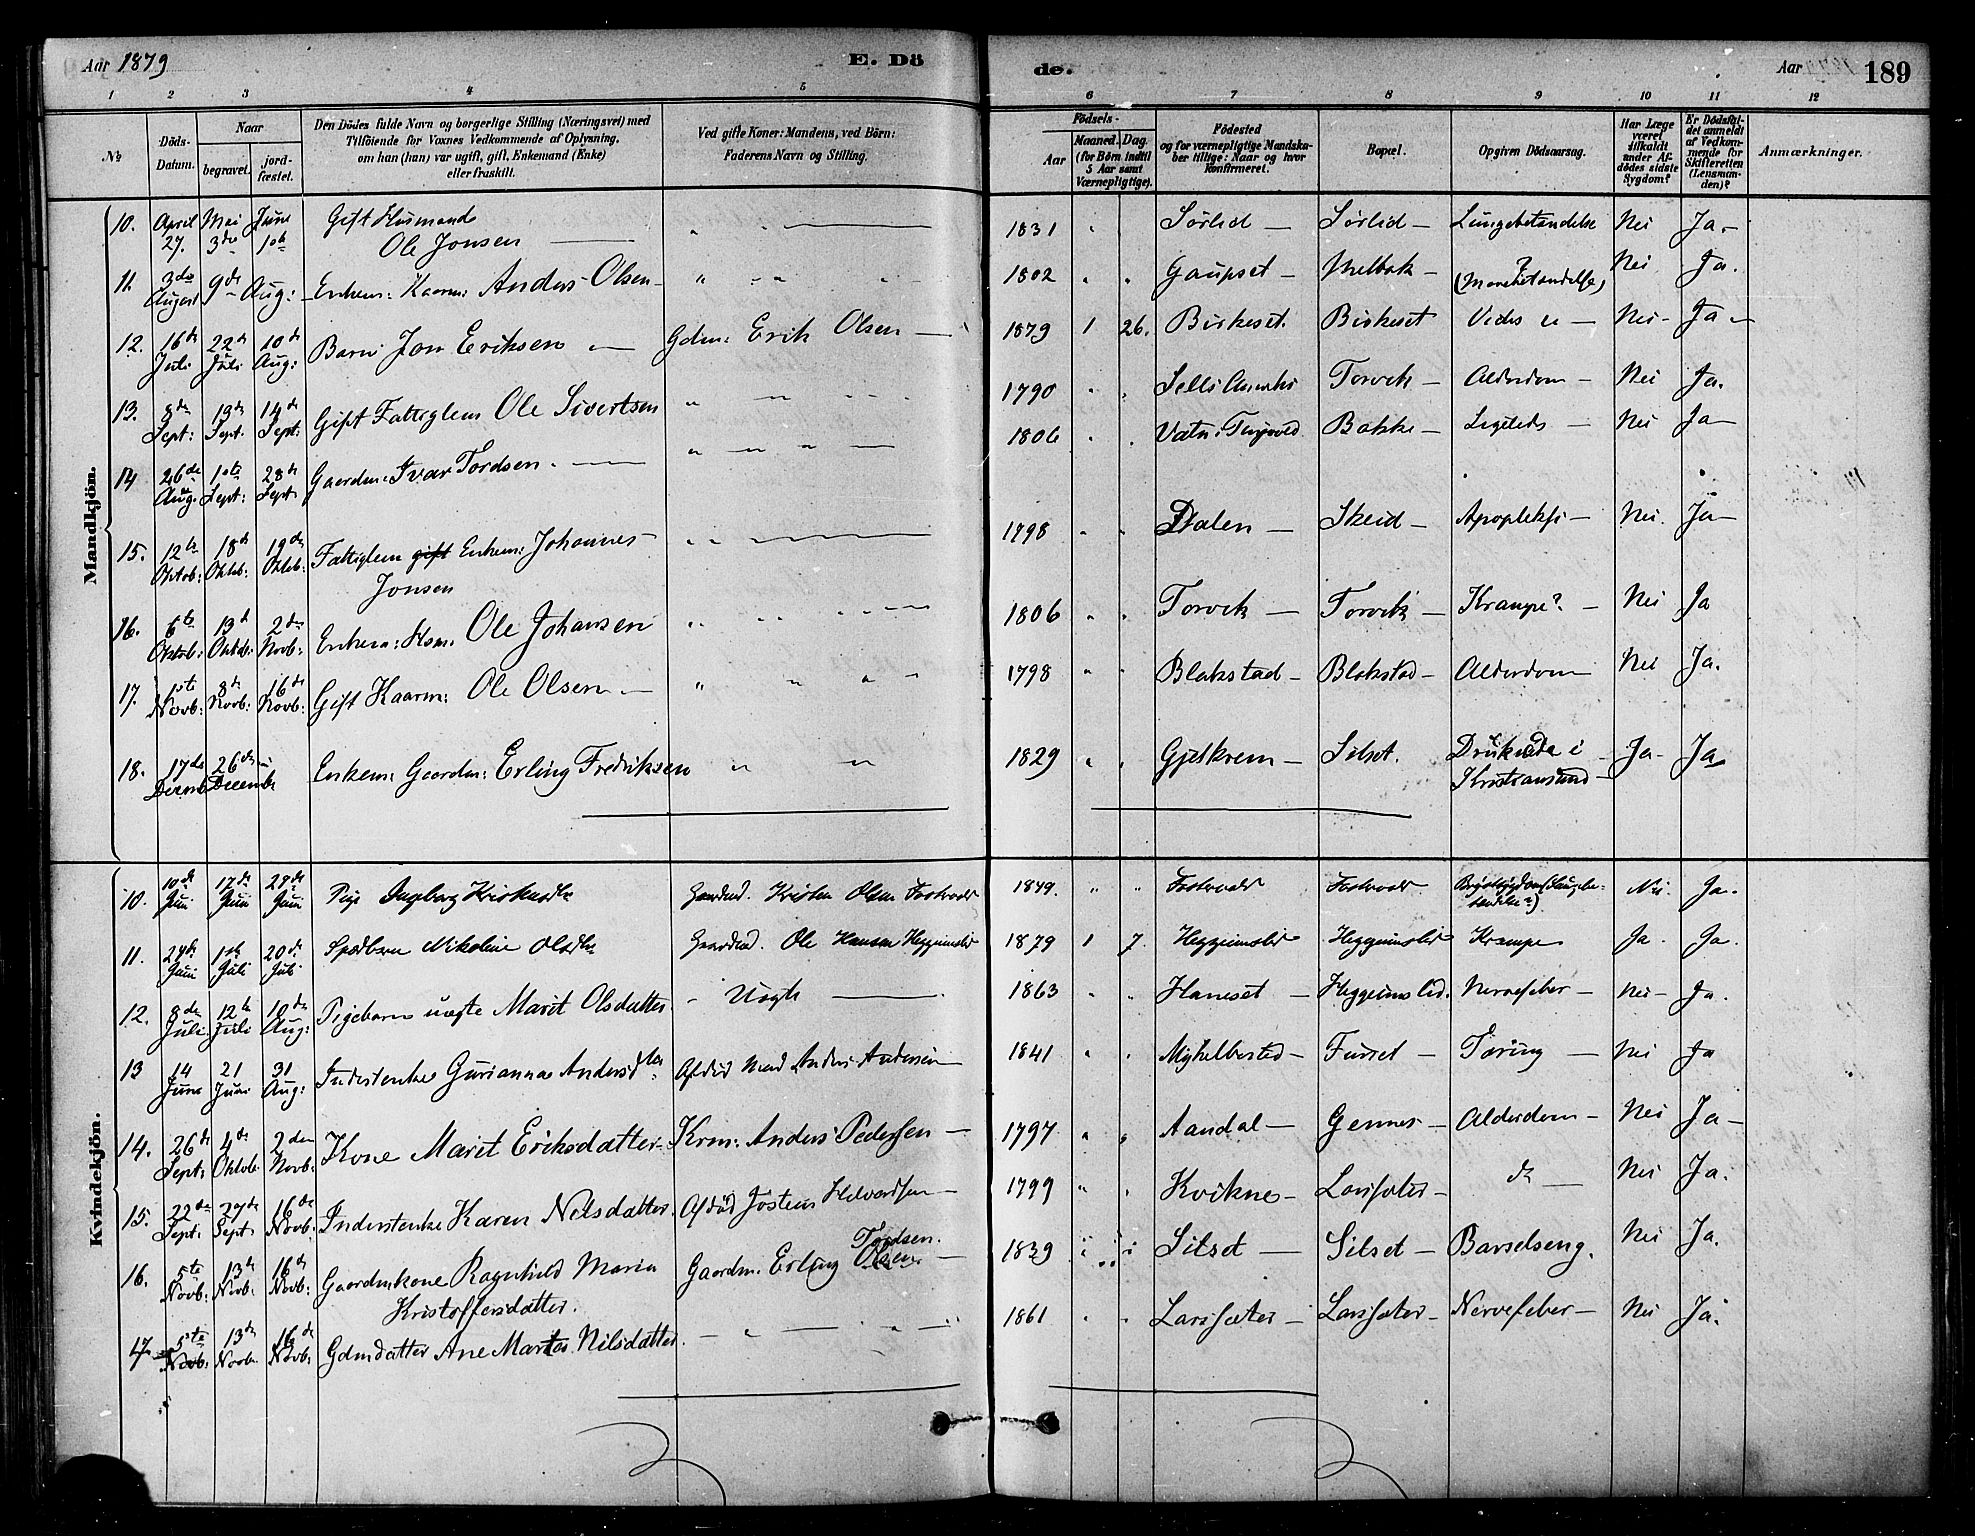 Aar 1879
E. Dö
de.
Aar
189
1 2 3 4 5 6 7 8 9 10 11 12
№
Döds-
Datum.
Naar
begravet.
jord-
fæstet.
Den Dödes fulde Navn og borgerlige Stilling (Næringsvei) med
Tilföiende for Voxnes Vedkommende af Oplysning,
om han (hun) var ugift, gift, Enkemand (Enke)
eller fraskilt.
Ved gifte Koner: Mandens, ved Börn:
Faderens Navn og Stilling.
Födsels-
Aar
Maaned. Dag.
(for Börn indtil
5 Aar samt
Værnepligtige).
Födested
og for værnepligtige Mandska-
ber tillige: Naar og hvor
konfirmeret.
Bopæl.
Opgiven Dödsaarsag.
Har Læge
været
tilkaldt
under Af-
dödes sidste
Sygdom?
Er Dödsfal-
det anmeldt
af Vedkom-
mende for
Skifteretten
(Lensman-
den)?
Anmærkninger.
Mandkjön.
10. April 27. Mai 3die Juni 1ste Gift Husmand Ole Jonsen 1831 Sörlid Sörlid Lungebetændelse Nei Ja
11. 3die August 9de Aug: Enkem: Kaarm: Anders Olsen 1802 Gaupset Melbak Nei Ja.
12. 16de Juli 22de Juli 10de Aug: Barn Jon Eriksen Gdm: Erik Olsen 1879 1 26. Birkeset Birkeset Vides ei Nei Ja
13. 8de Sept: 13de Sept. 14de Sept: Gift Fattiglem Ole Sivertsen 1790 Torvik Alderdom Nei Ja.
14 26de Aug. 1ste Sept: 28de Sept. Gaardm: Ivar Tordsen. 1806 Bakke Ligeleds Nei Ja
15. 12te Oktob: 18de Oktob: 19de Oktob: Fattiglem gift Enkem: Johannes Jonsen 1798 Dalen Skeid Apopleksi Nei. Ja
16. 6te Oktob: 13de Oktob: 2den Novb: Enkem: Hsm. Ole Johansen 1806 Torvik Torvik Krampe? Nei Ja
17. 1ste Novb: 8de Novb: 16de Novb: Gift Kaarm: Ole Olsen 1798 Blakstad Blakstad Alderdom Nei Ja.
18. 17de Decemb 26de Decembr Enkem: Gaardm: Erling Fredriksen 1829 Gjelkrem Silset. Druknede i Kristiansund Ja Ja
Kvindekjön.
10. 10de Juni 17de Juni 28de Juni Pige Ingeborg 1849. Nei. Ja.
11. 24de Juni 1ste Juli 20de Juli Spædbarn Nikoline Olsdtr Ole Hansen Heggeimslid 1879 1 7. Heggeimslid Heggeimslid Krampe Ja. Ja.
12. 8de Juli 12te Juli 10de Aug: Pigebarn uægte Marit Olsdatter Uægte 1863 Haneset Heggeimslid. Nervefeber Nei Ja.
13 14 Juni 21 Juni 31 Aug: Inderstenke Gurianna Andersdtr Afdød Mand Anders Andersen 1841 Myhelbostad Furset Tæring Nei Ja
14. 26de Sept: 4de Oktob. 2den Novb: Kone Marit Eriksdatter Krm: Anders Pedersen 1797 Aandal Gennes Alderdom Nei Ja
15. 22de Sept: 27de Sept 16de Novb: Inderstenke Karen Nilsdatter. Afdød Jostein Halvordsen 1799 Kvikne Larssæter do Nei Ja.
16. 5te Novb: 13de Novb: 16de Novb: Gaardmkone Ragnhild Maria Kristoffersdatter. Gaardm. Erling Olsen Tordsen. 1839 Silset Silset Barselseng. Nei Ja.
17. 5te Novb: 13de Novb. 16de Novb: Gdmdatter Ane Marta Nilsdatter. 1861 Larssæter Larssæter Nervefeber Nei Ja.